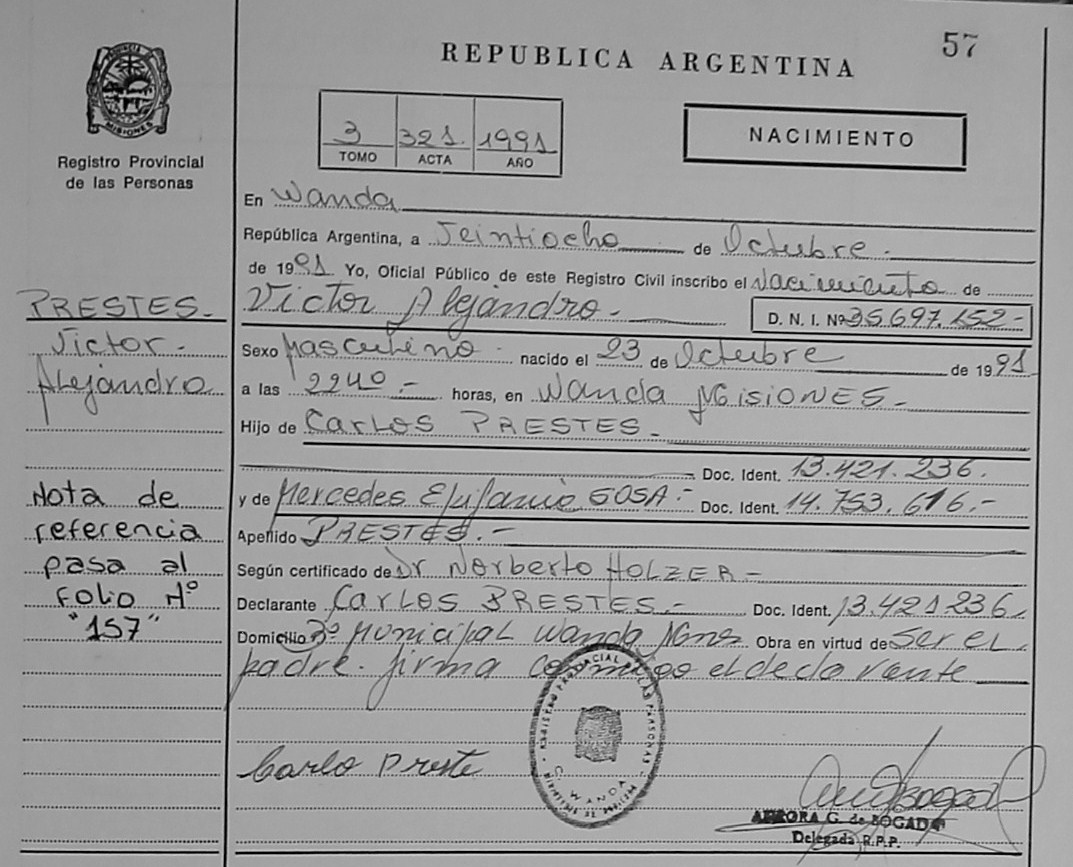 57
REPUBLICA ARGENTINA
MISIONES
Registro Provincial
de las Personas
3 321. 1991
TOMO ACTA AÑO
NACIMIENTO
En Wanda
República Argentina, a Veintiocho de Octubre.
de 1991 Yo, Oficial Público de este Registro Civil inscribo el Nacimiento de
Victor Alejandro.-
D. N. I. Nº 35.697.152-
Sexo Masculino nacido el 23 de Octubre de 1991
a las 2240.- horas, en Wanda MISIONES.-
Hijo de CARLOS PRESTES.-
Doc. Ident. 13.421.236.
y de Mercedes Epifania SOSA.- Doc. Ident. 14.753.616.-
Apellido PRESTES.-
Según certificado de Dr Norberto HOLZER-
Declarante CARLOS PRESTES.- Doc. Ident. 13.421236.
Domicilio Bº Municipal Wanda Mnes Obra en virtud de ser el
padre. firma conmigo el declarante
PRESTES.
Victor.
Alejandro
Nota de
referencia
pasa al
FOLIO Nº
"157"
Carlo Preste
REGISTRO PROVINCIAL DE LAS PERSONAS
WANDA
AURORA G. de BOGADO
Delegada R.P.P.